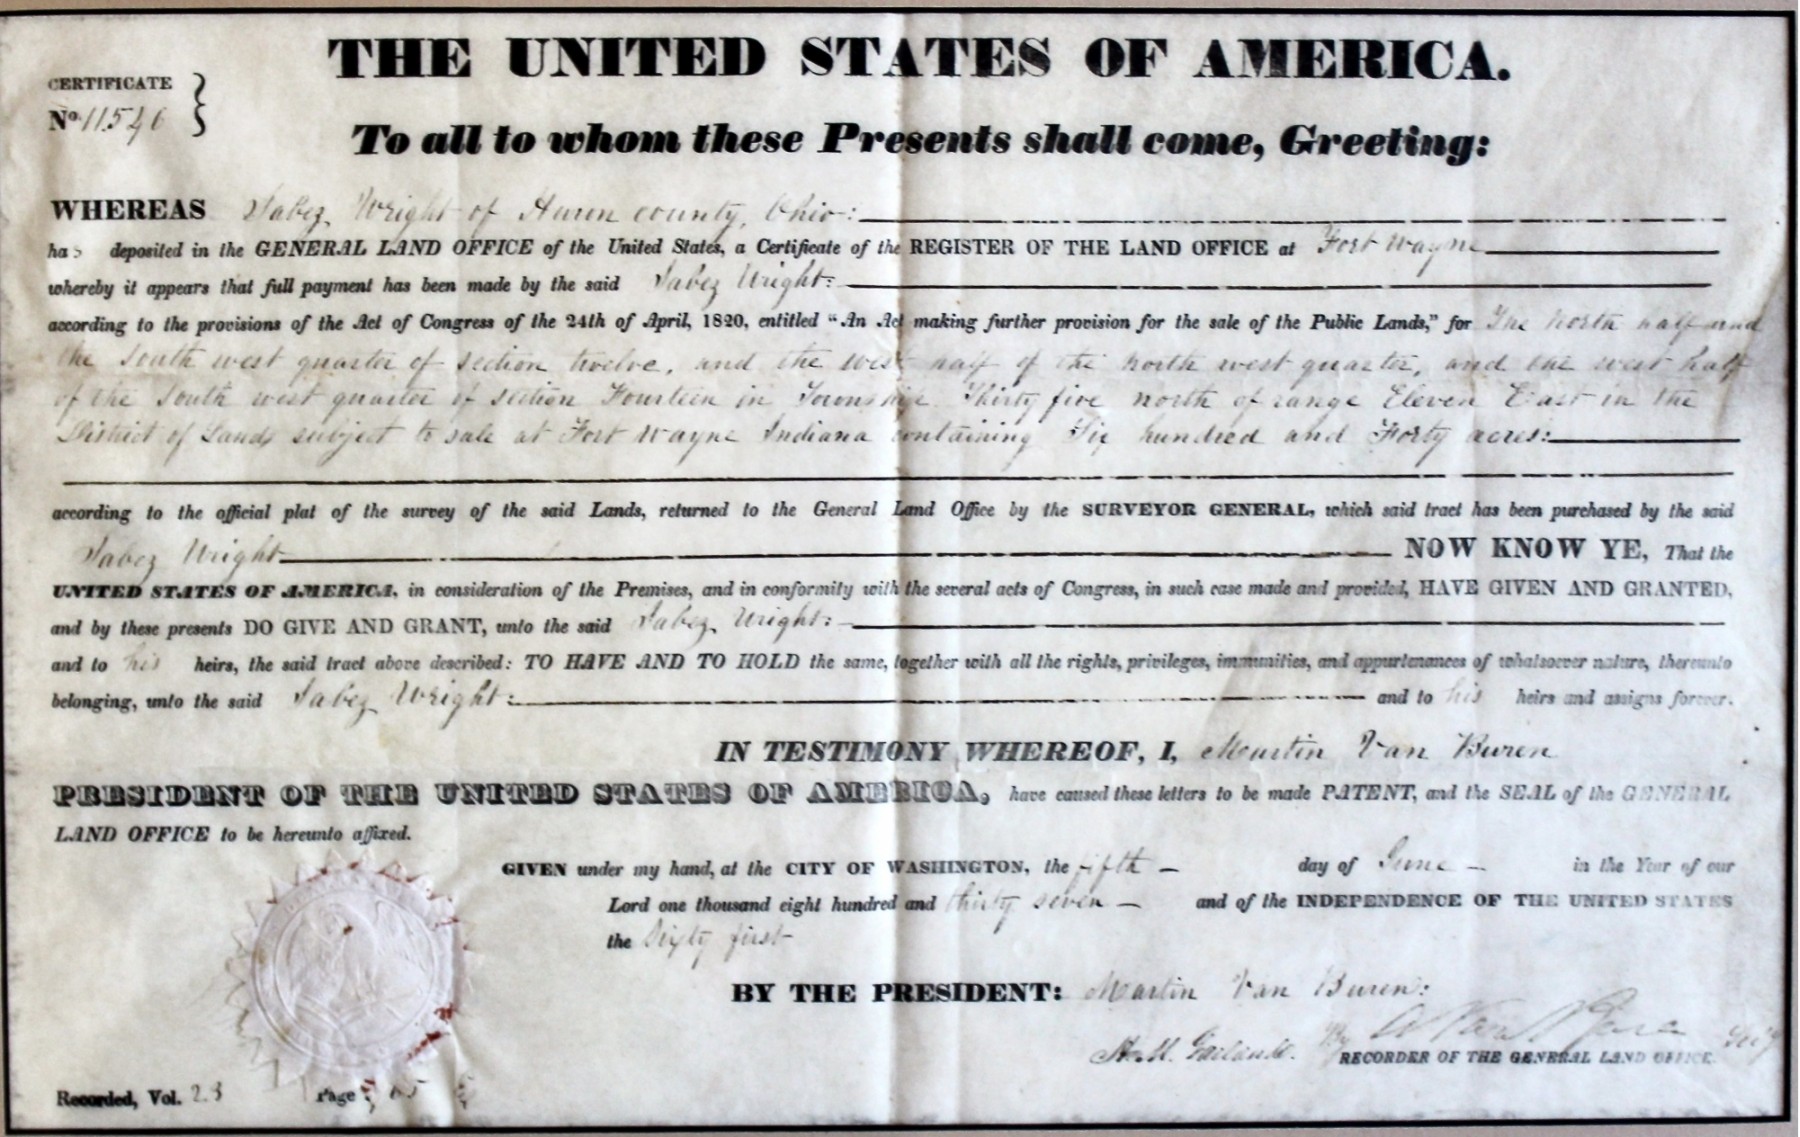 THE UNITED STATES OF AMERICA.
CERTIFICATE
No. 11546
To all to whom these Presents shall come, Greeting:
WHEREAS Jabez Wright of Huron county, Ohio:
has deposited in the GENERAL LAND OFFICE of the United States, a Certificate of the REGISTER OF THE LAND OFFICE at Fort Wayne
whereby it appears that full payment has been made by the said Jabez Wright:
according to the provisions of the Act of Congress of the 24th of April, 1820, entitled “An Act making further provision for the sale of the Public Lands,” for The North half and
the South west quarter of section twelve, and the west half of the north west quarter, and the west half
of the South west quarter of section Fourteen in Township Thirty five north of range Eleven East in the
District of Lands subject to sale at Fort Wayne Indiana containing Six hundred and Forty acres:
according to the official plat of the survey of the said Lands, returned to the General Land Office by the SURVEYOR GENERAL, which said tract has been purchased by the said
Jabez Wright NOW KNOW YE, That the
UNITED STATES OF AMERICA, in consideration of the Premises, and in conformity with the several acts of Congress, in such case made and provided, HAVE GIVEN AND GRANTED,
and by these presents DO GIVE AND GRANT, unto the said Jabez Wright:
and to his heirs, the said tract above described: TO HAVE AND TO HOLD the same, together with all the rights, privileges, immunities, and appurtenances of whatsoever nature, thereunto
belonging, unto the said Jabez Wright: and to his heirs and assigns forever.
IN TESTIMONY WHEREOF, I, Martin Van Buren
PRESIDENT OF THE UNITED STATES OF AMERICA, have caused these letters to be made PATENT, and the SEAL of the GENERAL
LAND OFFICE to be hereunto affixed.
GIVEN under my hand, at the CITY OF WASHINGTON, the fifth day of June in the Year of our
Lord one thousand eight hundred and thirty seven and of the INDEPENDENCE OF THE UNITED STATES
the Sixty first
BY THE PRESIDENT: Martin Van Buren:
By
RECORDER OF THE GENERAL LAND OFFICE.
Recorded, Vol. 23 Page